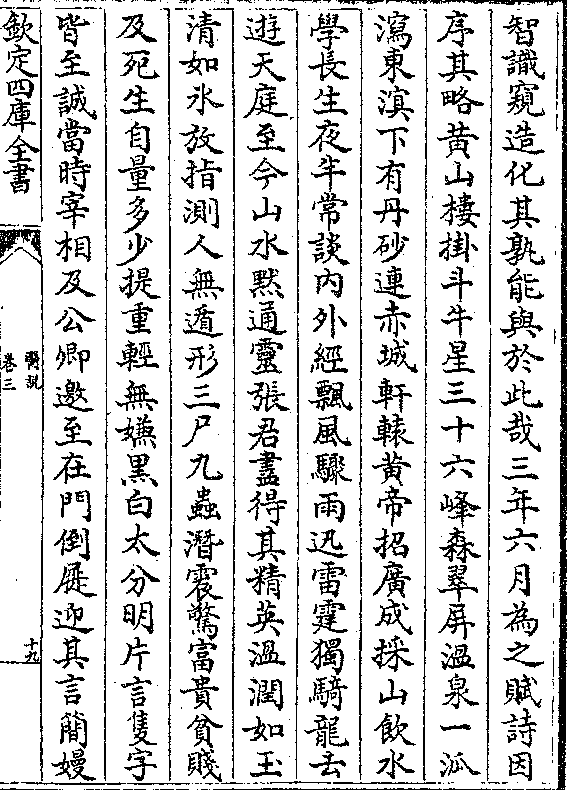 智識窺造化其孰能與於此哉三年六月為之賦詩因
序其略黄山棲掛斗牛星三十六峰森翠屏温泉一派
瀉東滇下有丹砂連赤城軒轅黄帝招廣成採山飲水
學長生夜半常談内外經飄風驟雨迅雷霆獨騎龍去
遊天庭至今山水黙通靈張君盡得其精英温潤如玉
清如氷放指測人無遁形三尸九蟲潛震驚富貴貧賤
及死生自量多少提重輕無嫌黒白太分明片言隻字
皆至誠當時宰相及公卿邀至在門倒屣迎其言簡嫚
欽定四庫全書
醫説
卷三
十九